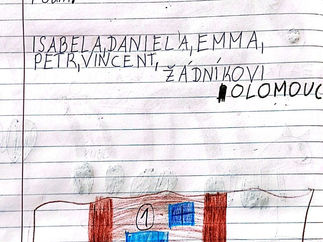 ISABELA,DANIELA,EMMA,
PETR,VINCENT,
ŽÁDNÍKOVI
OLOMOUC
1